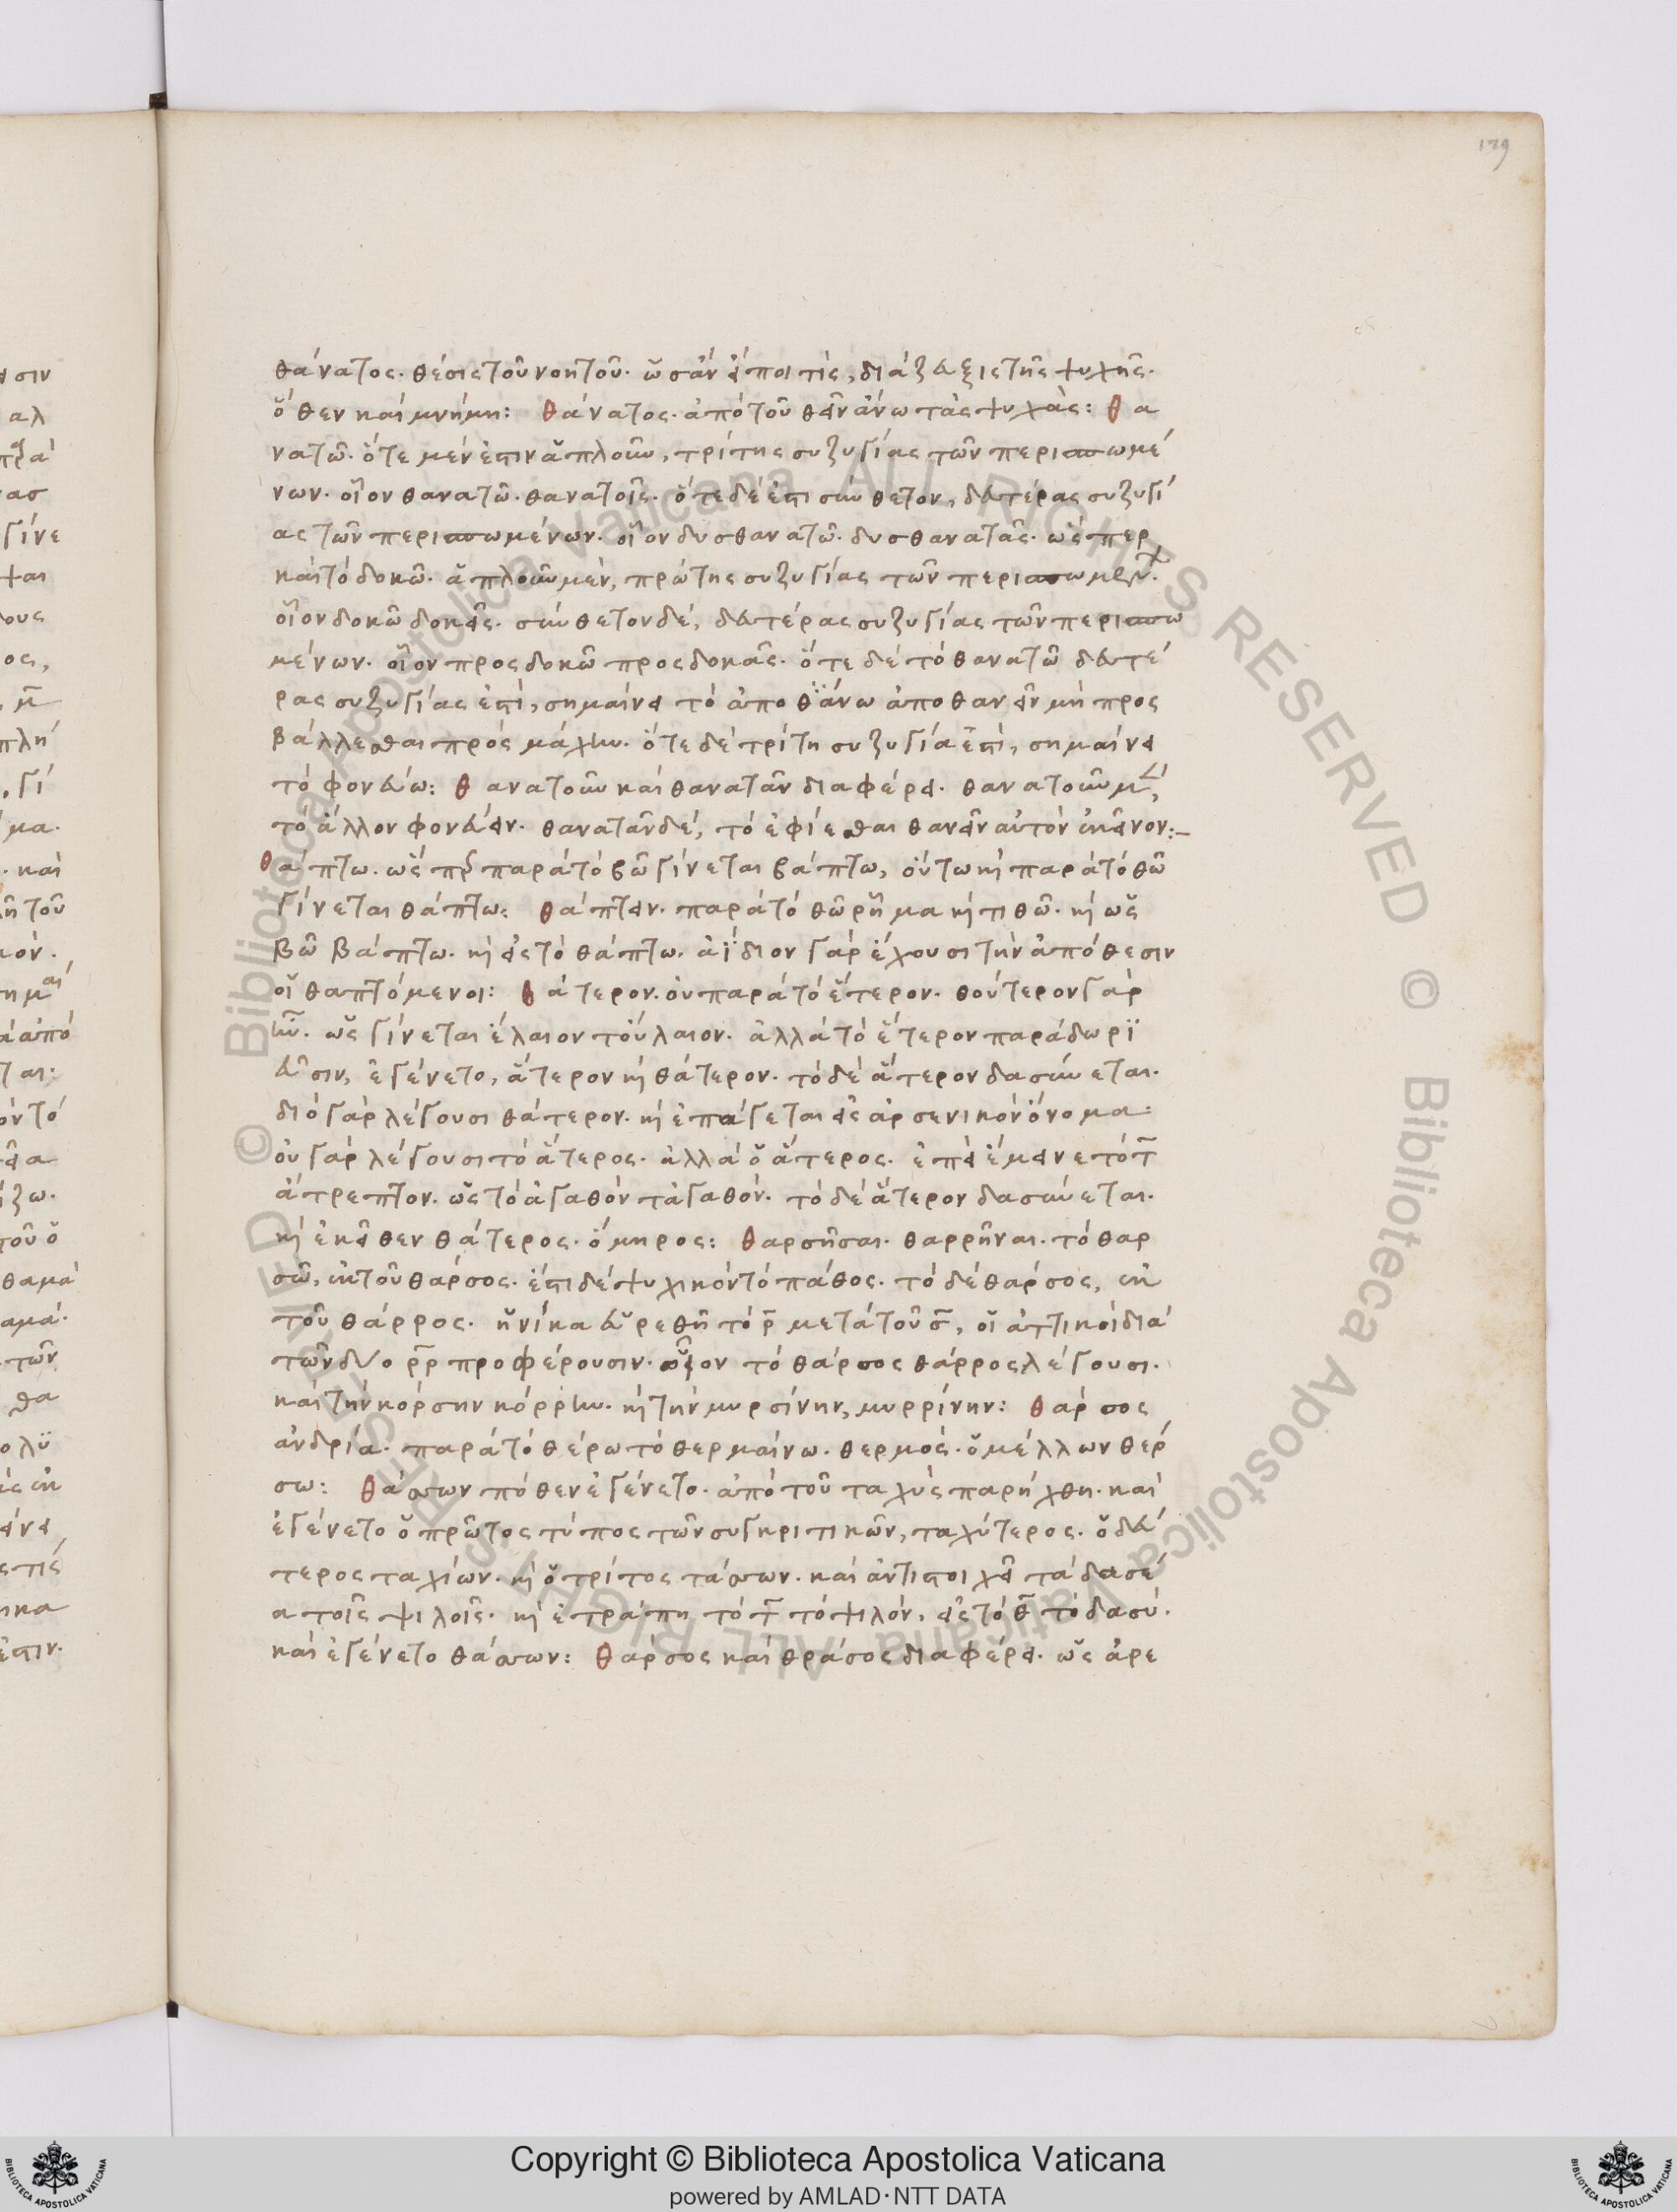 179
θάνατος· θέσις τοῦ νοητοῦ· ὡσὰν εἴποι τίς, διάζευξις τῆς ψυχῆς·
ὅθεν καὶ μνήμη: θάνατος· ἀπὸ τοῦ θεῖν ἄνω τὰς ψυχάς: θα
νατῶ· ὅτε μέν ἐστιν ἁπλοῦν, τρίτης συζυγίας τῶν περισπωμέ
νων· οἷον θανατῶ· θανατοῖς· ὅτε δέ ἐστι σύνθετον, δευτέρας συζυγί
ας τῶν περισπωμένων· οἷον δυσθανατῶ· δυσθανατᾶς· ὥσπερ
καὶ τὸ δοκῶ· ἁπλοῦν μὲν, πρώτης συζυγίας τῶν περισπωμένων·
οἷον δοκῶ δοκεῖς· σύνθετον δέ, δευτέρας συζυγίας τῶν περισπω
μένων· οἷον προςδοκῶ προςδοκᾶς· ὅτε δὲ τὸ θανατῶ δευτέ
ρας συζυγίας ἐστί, σημαίνει τὸ ἀποθάνω ἀποθανεῖν μὴ προς
βάλλεσθαι πρὸς μάχην· ὅτε δὲ τρίτη συζυγία ἐστί, σημαίνει
τὸ φονεύω: θανατοῦν καὶ θανατᾶν διαφέρει· θανατοῦν μέν,
τὸ ἄλλον φονεύειν· θανατᾶν δέ, τὸ ἐφίεσθαι θανεῖν αὐτὸν ἐκεῖνον:–
θάπτω· ὥσπερ παρὰ τὸ βῶ γίνεται βάπτω, οὕτω καὶ παρὰ τὸ θῶ
γίνεται θάπτω: θάπτειν· παρὰ τὸ θῶ ῥῆμα καὶ τιθῶ· καὶ ὡς
βῶ βάπτω· καὶ εἰς τὸ θάπτω· ἀΐδιον γὰρ ἔχουσι τὴν ἀπόθεσιν
οἱ θαπτόμενοι: θάτερον· οὐ παρὰ τὸ ἕτερον· θούτερον γὰρ
ἦν· ὡς γίνεται ἔλαιον τοὔλαιον· ἀλλὰ τὸ ἕτερον παρὰ δωρι
εῦσιν, ἐγένετο, ἅτερον καὶ θάτερον· τὸ δὲ ἅτερον δασύνεται·
διὸ γὰρ λέγουσι θάτερον· καὶ ἐπάγεται εἰς ἀρσενικὸν ὄνομα:
οὐ γὰρ λέγουσι τὸ ἅτερος· ἀλλὰ ὁ ἅτερος· ἐπεὶ ἔμεινε τὸ τ
ἄτρεπτον· ὡς τὸ ἀγαθὸν τἀγαθόν· τὸ δὲ ἅτερον δασύνεται·
καὶ ἐκεῖθεν θάτερος· ὅμηρος: θαρσῆσαι· θαρρῆναι· τὸ θαρ
σῶ, ἐκ τοῦ θάρσος· ἔστι δὲ ψυχικὸν τὸ πάθος· τὸ δὲ θάρσος, ἐκ
τοῦ θάρρος· ἡνίκα εὑρεθῆ τὸ ρ μετὰ τοῦ σ, οἱ ἀττικοὶ διὰ
τῶν δύο ρρ προφέρουσιν· οἷον τὸ θάρσος θάρρος λέγουσι·
καὶ τὴν κόρσην κόρρην· καὶ τὴν μυρσίνην, μυρρίνην: θάρσος
ἀνδρία· παρὰ τὸ θέρω τὸ θερμαίνω· θερμός· ὁ μέλλων θέρ
σω: θάσσων πόθεν ἐγένετο· ἀπὸ τοῦ ταχὺς παρήχθη· καὶ
ἐγένετο ὁ πρῶτος τύπος τῶν συγκριτικῶν, ταχύτερος· ὁ δεύ
τερος ταχίων· καὶ ὁ τρίτος τάσσων· καὶ ἀντιστοιχεῖ τὰ δασέ
α τοῖς ψιλοῖς· καὶ ἐτράπη τὸ τ τὸ ψιλόν, εἰς τὸ θ τὸ δασύ·
καὶ ἐγένετο θάσσων: θάρσος καὶ θράσος διαφέρει· ὡς ἀρε
Copyright © Biblioteca Apostolica Vaticana
powered by AMLAD·NTT DATA